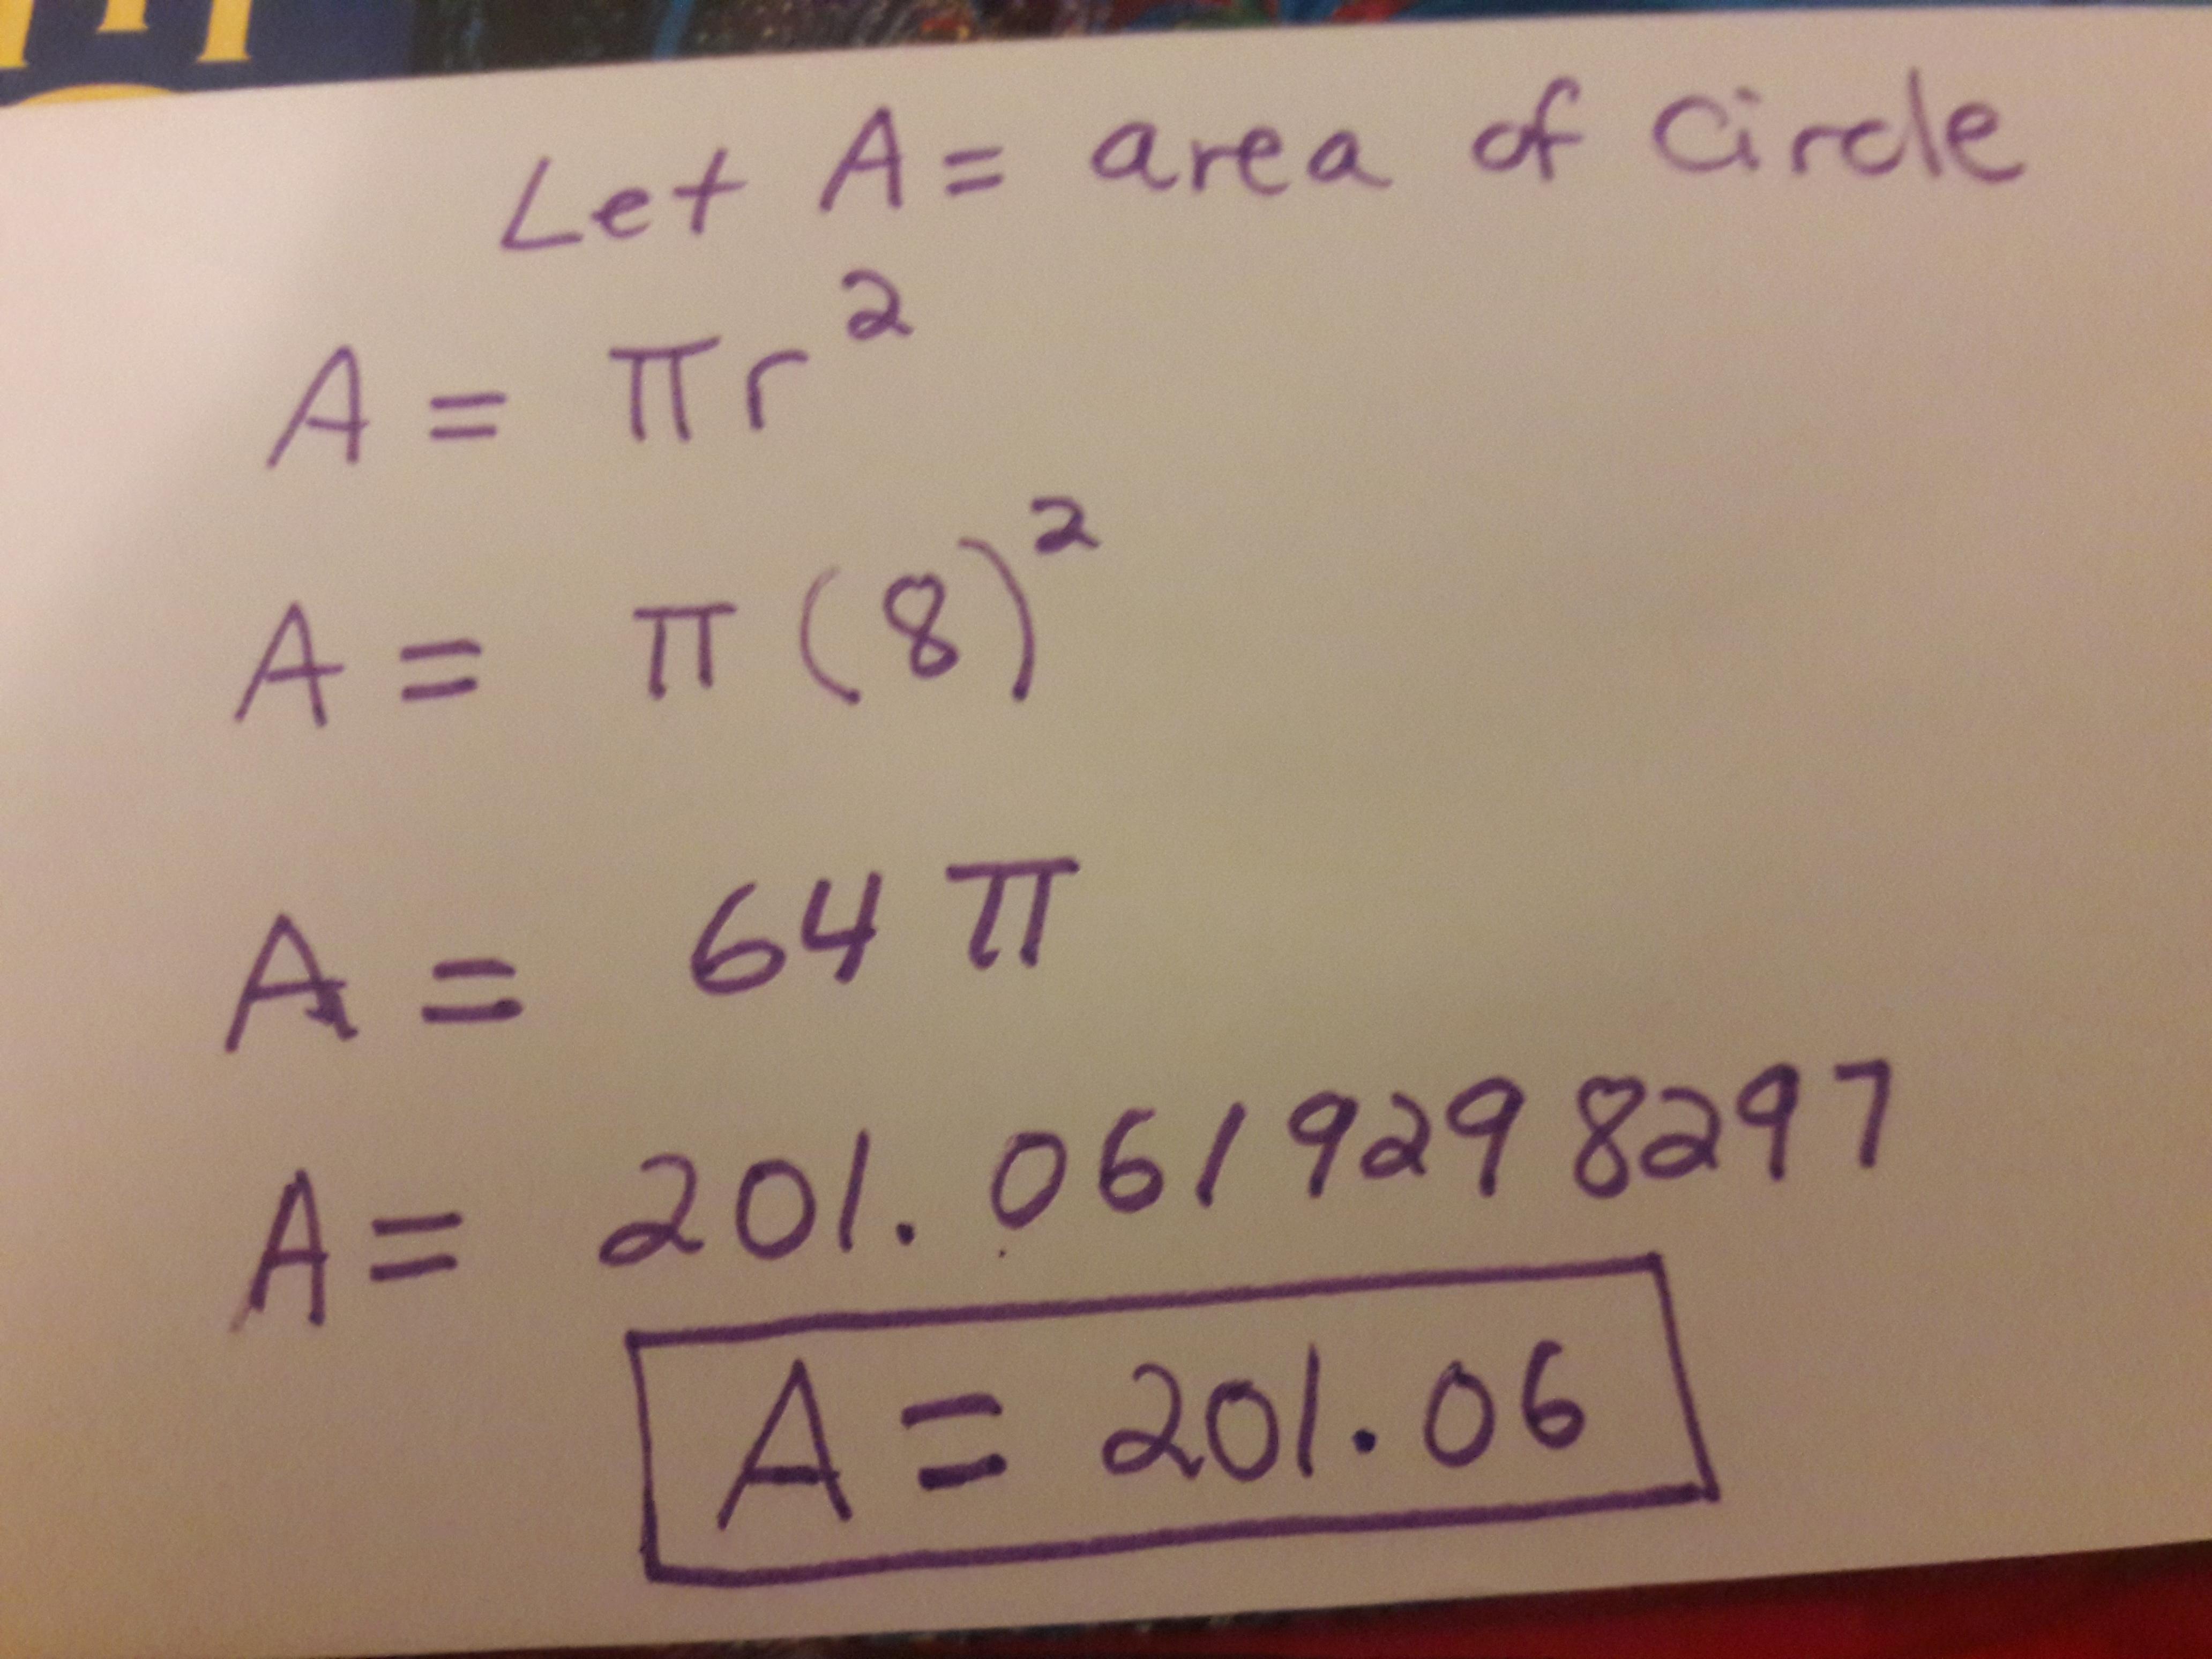 Let A = area of Circle
A = πr²
A = π(8)²
A = 64π
A = 201.0619298297
A = 201.06